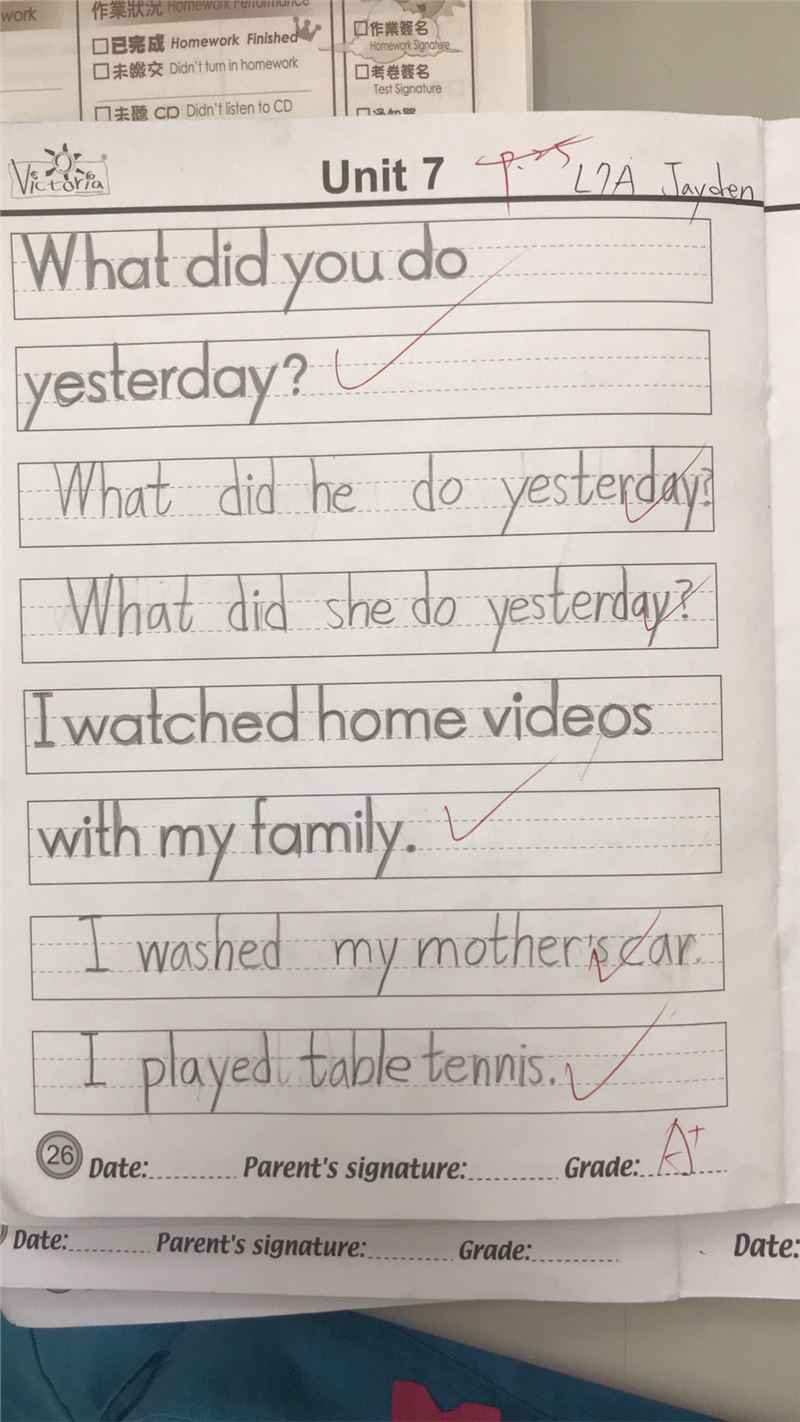 work
作業狀況 Homework Performance
□已完成 Homework Finished
□未繳交 Didn't turn in homework
□未聽 CD Didn't listen to CD
□作業簽名
Homework Signature
□考卷簽名
Test Signature
Victoria
Unit 7
p.25
L7A Jayden
What did you do
yesterday?
What did he do yesterday?
What did she do yesterday?
I watched home videos
with my family.
I washed my mother's car.
I played table tennis.
26 Date: Parent's signature: Grade: A+
Date: Parent's signature: Grade:
Date: